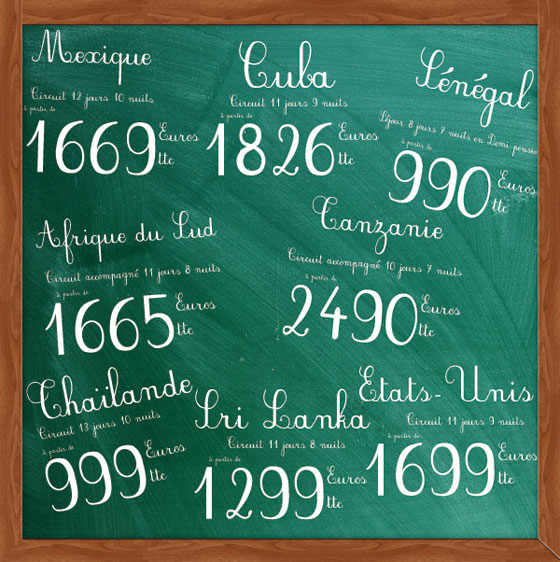 Mexique
Circuit 12 jours 10 nuits
à partir de
1669 Euros
ttc
Cuba
Circuit 11 jours 9 nuits
à partir de
1826 Euros
ttc
Sénégal
Séjour 8 jours 7 nuits en Demi pension
à partir de
990 Euros
ttc
Afrique du Sud
Circuit accompagné 11 jours 8 nuits
à partir de
1665 Euros
ttc
Tanzanie
Circuit accompagné 10 jours 7 nuits
à partir de
2490 Euros
ttc
Thaïlande
Circuit 13 jours 10 nuits
à partir de
999 Euros
ttc
Sri Lanka
Circuit 11 jours 8 nuits
à partir de
1299 Euros
ttc
Etats-Unis
Circuit 11 jours 9 nuits
à partir de
1699 Euros
ttc